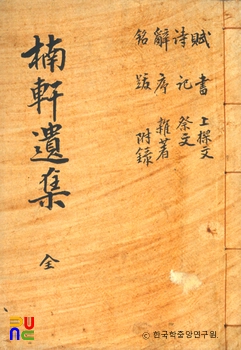 賦 書 上樑文
詩 記 祭文
辭 序 雜著
銘 跋 附錄
楠軒遺集 全
© 한국학중앙연구원